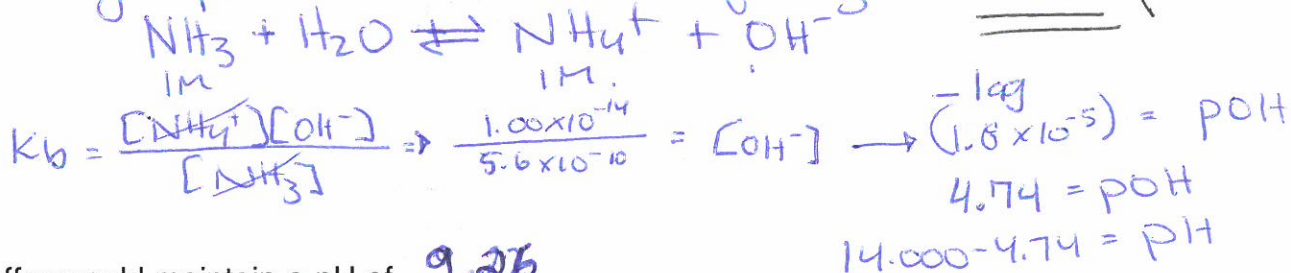 NH₃ + H₂O ⇌ NH₄⁺ + OH⁻
1M 1M.
Kb = [NH₄⁺][OH⁻] / [NH₃] ⇒ 1.00×10⁻¹⁴ / 5.6×10⁻¹⁰ = [OH⁻] → -log (1.8×10⁻⁵) = pOH
4.74 = pOH
14.000-4.74 = pH
maintain a pH of 9.26